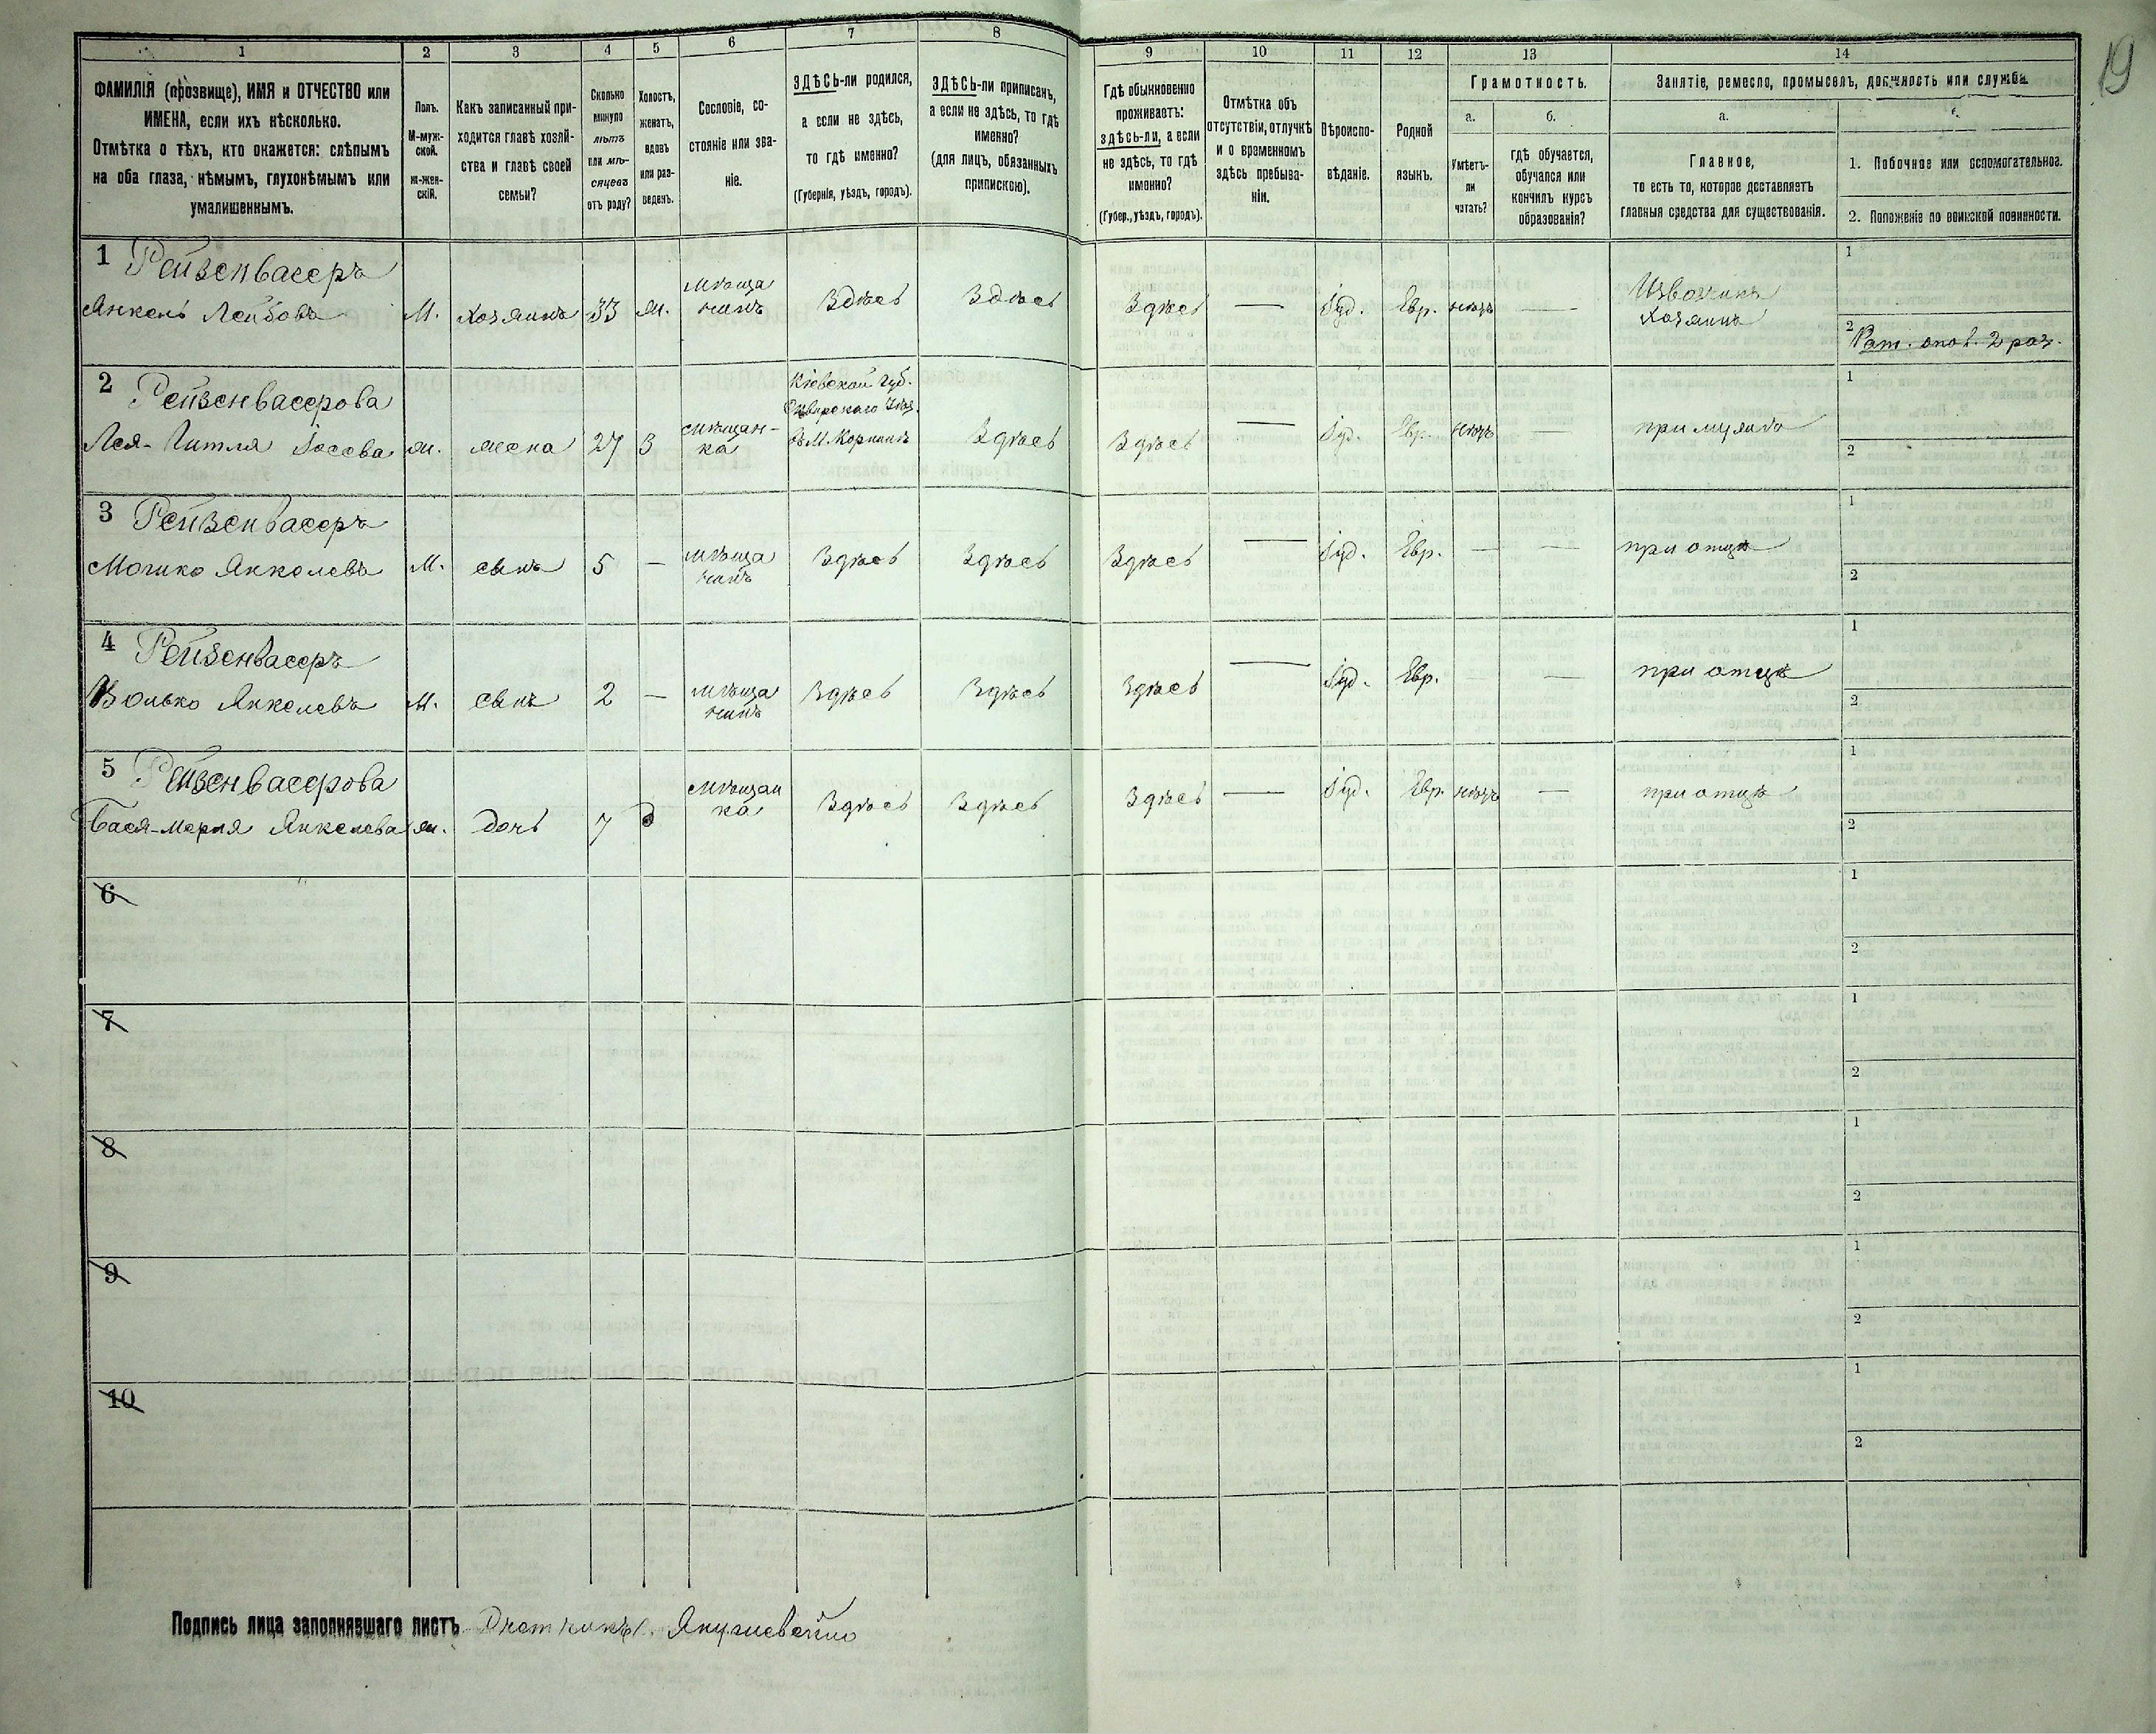 19
1 2 3 4 5 6 7 8 9 10 11 12 13 14
ФАМИЛІЯ (прозвище), ИМЯ и ОТЧЕСТВО или
ИМЕНА, если ихъ нѣсколько.
Отмѣтка о тѣхъ, кто окажется: слѣпымъ
на оба глаза, нѣмымъ, глухонѣмымъ или
умалишеннымъ.
Полъ.
М-муж-
ской.
ж-жен-
скій.
Какъ записанный при-
ходится главѣ хозяй-
ства и главѣ своей
семьи?
Сколько
минуло
лѣтъ
или мѣ-
сяцевъ
отъ роду?
Холостъ,
женатъ,
вдовъ
или раз-
веденъ.
Сословіе, со-
стояніе или зва-
ніе.
ЗДѢСЬ-ли родился,
а если не здѣсь,
то гдѣ именно?
(Губернія, уѣздъ, городъ).
ЗДѢСЬ-ли приписанъ,
а если не здѣсь, то гдѣ
именно?
(для лицъ, обязанныхъ
припискою).
Гдѣ обыкновенно
проживаетъ:
здѣсь-ли, а если
не здѣсь, то гдѣ
именно?
(Губер., уѣздъ, городъ).
Отмѣтка объ
отсутствіи, отлучкѣ
и о временномъ
здѣсь пребыва-
ніи.
Вѣроиспо-
вѣданіе.
Родной
языкъ.
Грамотность.
а.
Умѣетъ-
ли
читать?
б.
гдѣ обучается,
обучался или
кончилъ курсъ
образованія?
Занятіе, ремесло, промыселъ, должность или служба.
а.
Главное,
то есть то, которое доставляетъ
главныя средства для существованія.
1. Побочное или вспомогательное.
2. Положеніе по воинской повинности.
1 Рейзенвасеръ
Янкель Лейбовъ М. хозяинъ 33 ж. мѣща
нинъ Здѣсь Здѣсь Здѣсь — Іуд. Евр. нѣтъ — Извозчикъ
хозяинъ
1
2 Рат. опол. 2 раз.
2 Рейзенвасерова
Лея-Гитля Іосева ж. жена 27 З мѣщан-
ка Кіевской губ.
Сквирскаго Уѣз.
въ М. Корнинѣ Здѣсь Здѣсь — Іуд. Евр. нѣтъ — при мужѣ
1
2
3 Рейзенвасеръ
Мошко Янкелевъ М. сынъ 5 — мѣща
нинъ Здѣсь Здѣсь Здѣсь — Іуд. Евр. — — при отцѣ
1
2
4 Рейзенвасеръ
Волько Янкелевъ М. сынъ 2 — мѣща
нинъ Здѣсь Здѣсь Здѣсь — Іуд. Евр. — — при отцѣ
1
2
5 Рейзенвасерова
Бася-Мария Янкелева ж. дочь 7 д мѣщан
ка Здѣсь Здѣсь Здѣсь — Іуд. Евр. нѣтъ — при отцѣ
1
2
6
1
2
7
1
2
8
1
2
9
1
2
10
1
2
Подпись лица заполнявшаго листъ